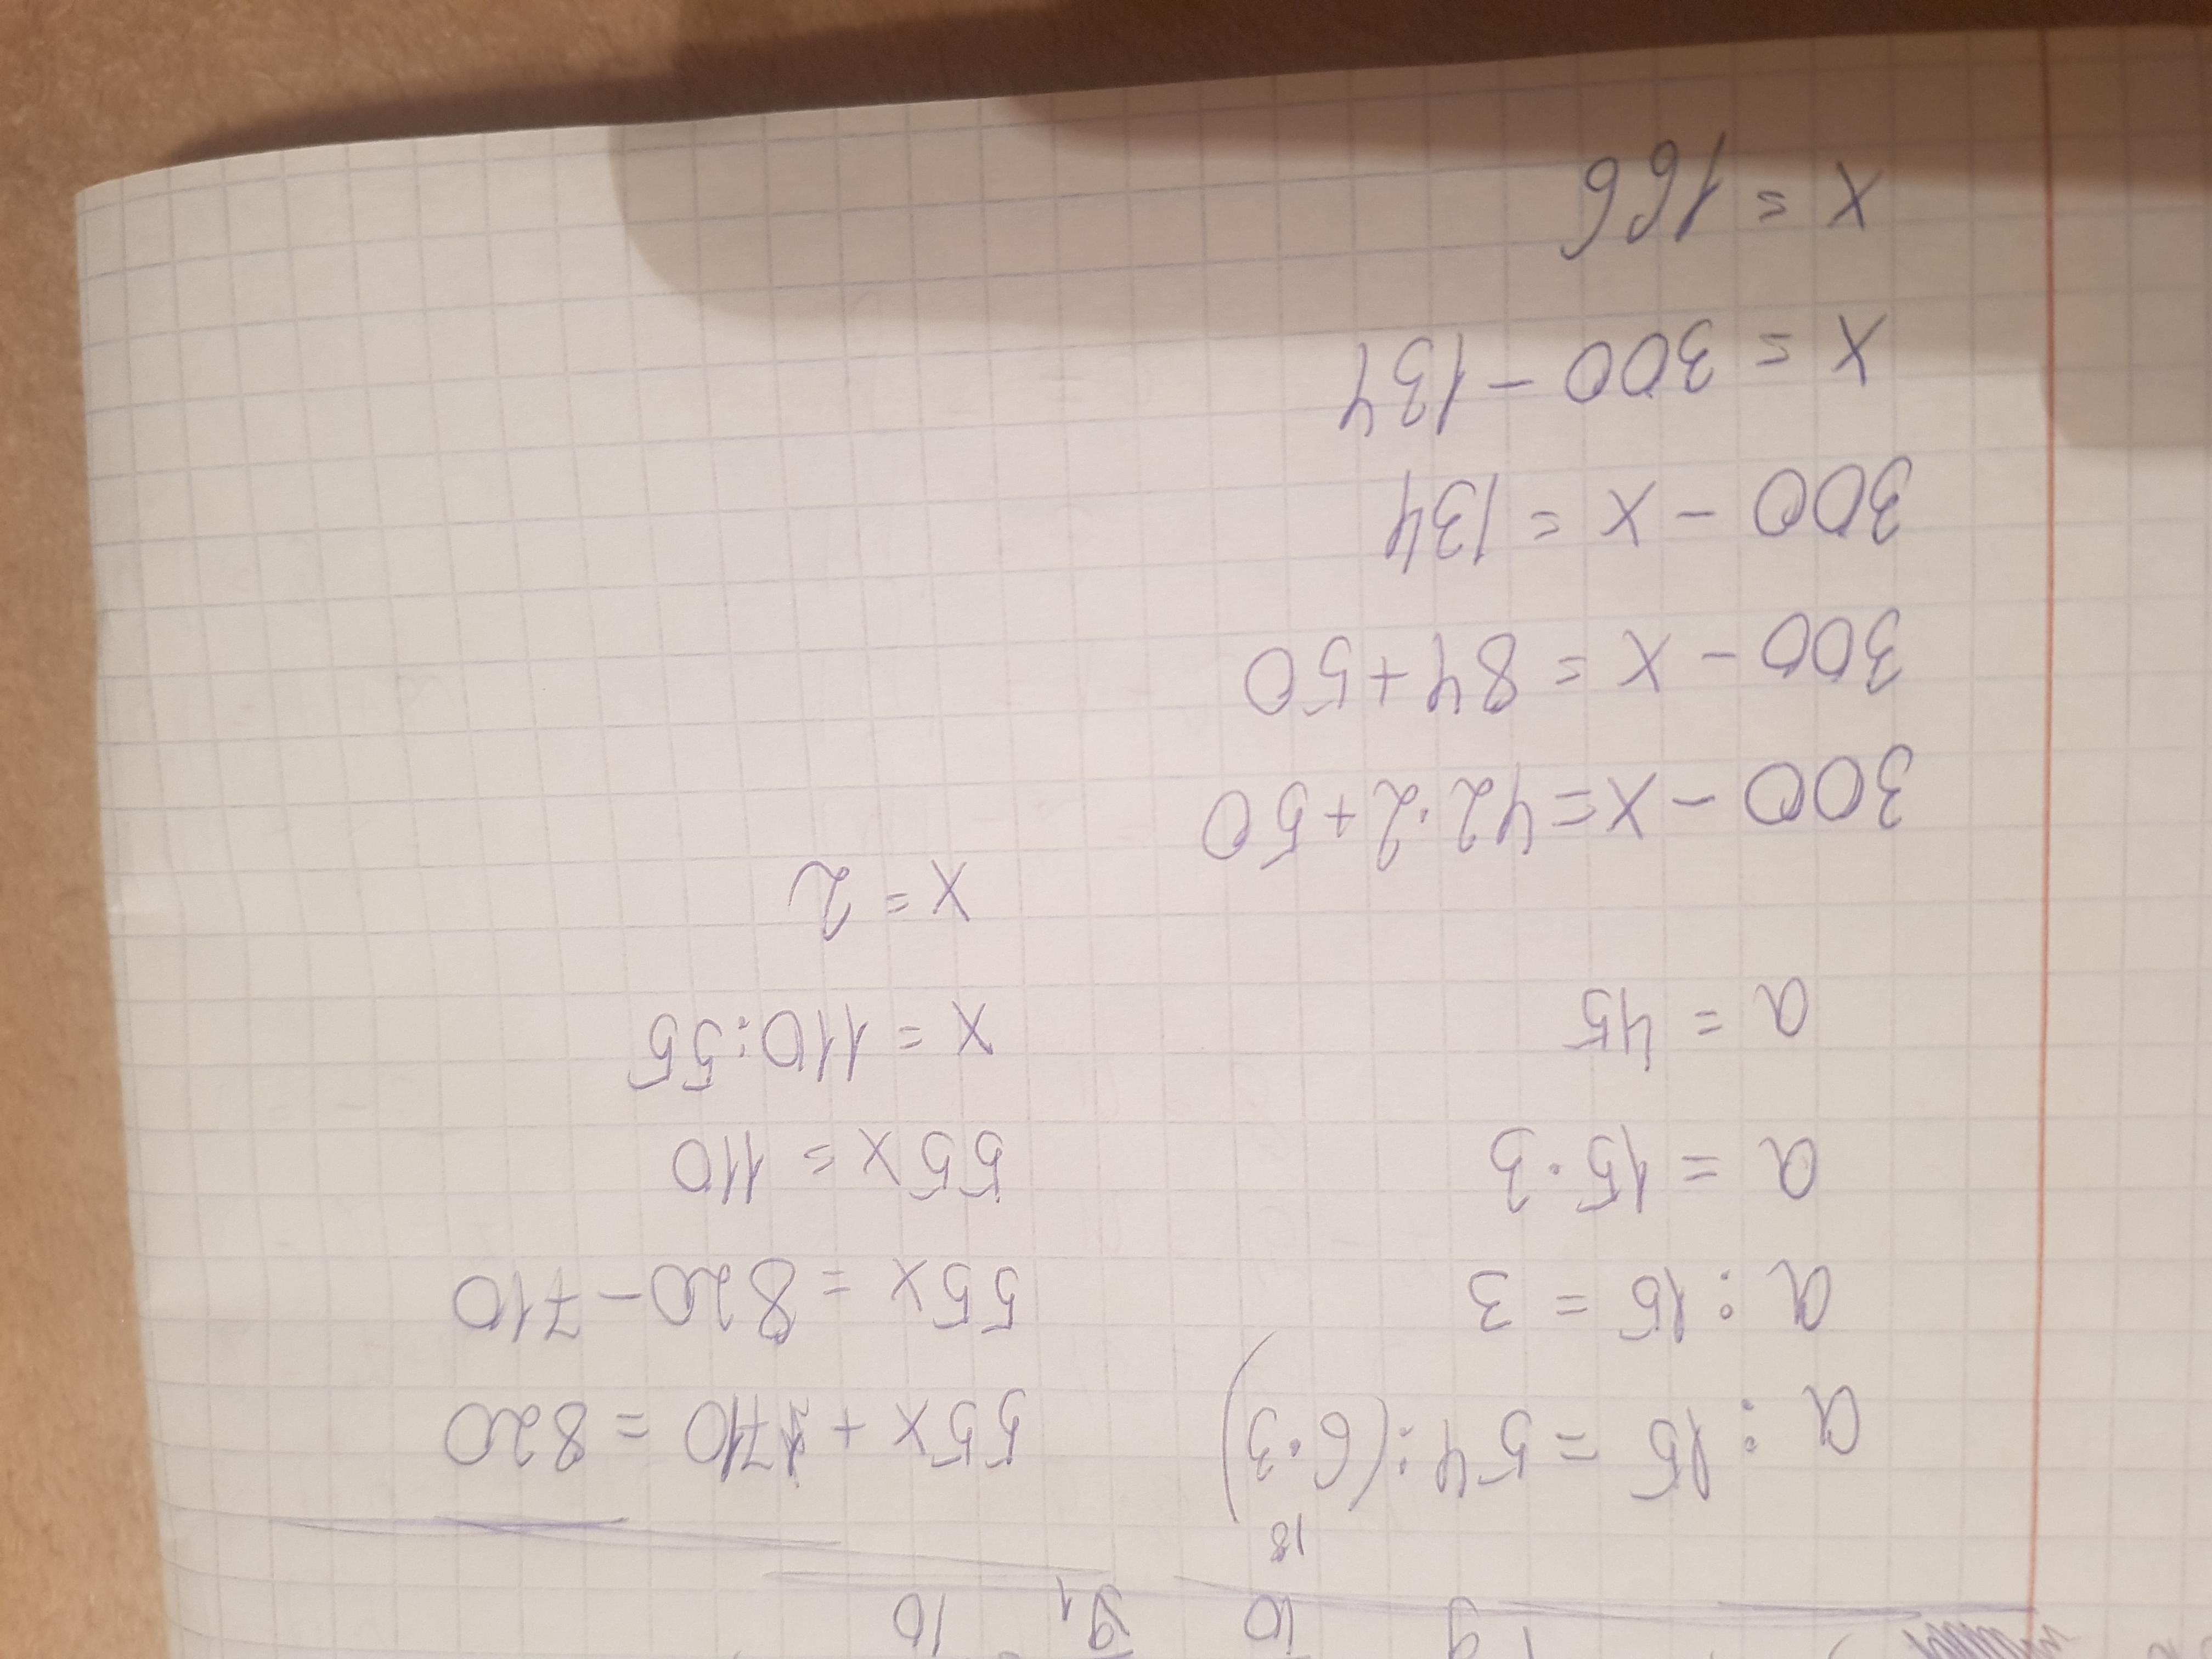 18
a : 15 = 54 : (6 · 3)
a : 15 = 3
a = 15 · 3
a = 45
55x + 710 = 820
55x = 820 - 710
55x = 110
x = 110 : 55
x = 2
300 - x = 42 · 2 + 50
300 - x = 84 + 50
300 - x = 134
x = 300 - 134
x = 166